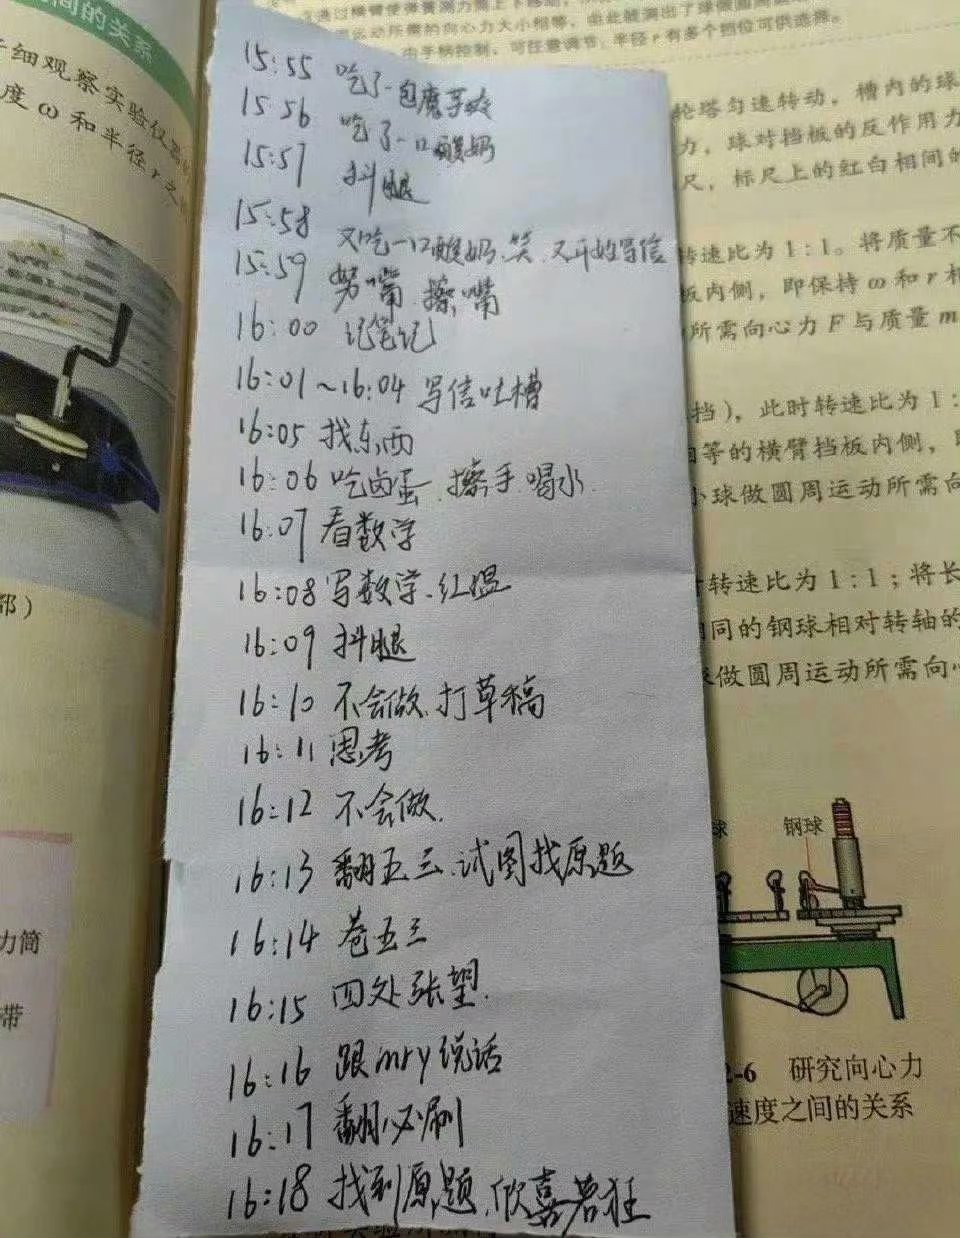 间的关系
仔细观察实验仪器
度 ω 和半径 r 之
力筒
带
15:55 吃了一包魔芋爽
15:56 吃了一口酸奶
15:57 抖腿
15:58 又吃一口酸奶、笑、又开始写信
15:59 努嘴、擦嘴
16:00 记笔记
16:01~16:04 写信吐槽
16:05 找东西
16:06 吃卤蛋、擦手、喝水
16:07 看数学
16:08 写数学、红温
16:09 抖腿
16:10 不会做、打草稿
16:11 思考
16:12 不会做、
16:13 翻五三、试图找原题
16:14 卷五三
16:15 四处张望、
16:16 跟mry说话
16:17 翻必刷
16:18 找到原题、欣喜若狂
运动所需的向心力大小相等,由此就演出了球做圆周
由手柄控制,可任意调节,半径 r 有多个档位可供选择。
轮塔匀速转动,槽内的球
力,球对挡板的反作用力
尺,标尺上的红白相间的
转速比为 1:1。将质量不
板内侧,即保持 ω 和 r 相
所需向心力 F 与质量 m
挡),此时转速比为 1:
相等的横臂挡板内侧,
小球做圆周运动所需向
时转速比为 1:1;将长
相同的钢球相对转轴的
球做圆周运动所需向心
球
钢球
2-6 研究向心力
速度之间的关系